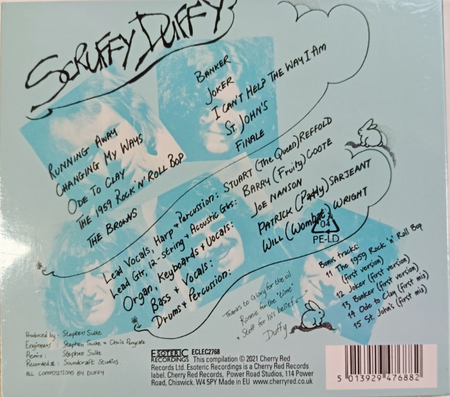 SCRUFFY DUFFY
RUNNING AWAY
CHANGING MY WAYS
ODE TO CLAY
THE 1959 ROCK 'N' ROLL BOP
THE BROWNS
BANKER
JOKER
I CAN'T HELP THE WAY I AM
ST. JOHN'S
FINALE
Lead Vocals, Harp & Percussion: STUART (The Queen) REFFOLD
Lead Gtr, 12-String & Acoustic Gtrs: BARRY (Fruity) COOTE
Organ, Keyboards & Vocals: JOE NANSON
Bass & Vocals: PATRICK (Paddy) SARJEANT
Drums & Percussion: WILL (Wombat) WRIGHT
04
PE-LD
Bonus tracks:
11 The 1959 Rock 'n' Roll Bop
(first version)
12 Joker (first version)
13 Banker (first version)
14 Ode to Clay (first mix)
15 St. John's (first mix)
Thanks to Glory for the oil
Ronnie for the "time"
& Scoff for his belief
Duffy
Produced by: Stephen Sulke
Engineers: Stephen Sulke &
Remix: Stephen Sulke
Recorded at: Soundcraft Studios
ALL COMPOSITIONS BY DUFFY
ESOTERIC
RECORDINGS
ECLEC2768
This compilation © 2021 Cherry Red
Records Ltd. Esoteric Recordings is a Cherry Red Records
label. Cherry Red Records, Power Road Studios, 114 Power
Road, Chiswick. W4 5PY Made in EU www.cherryred.co.uk
5 013929 476882